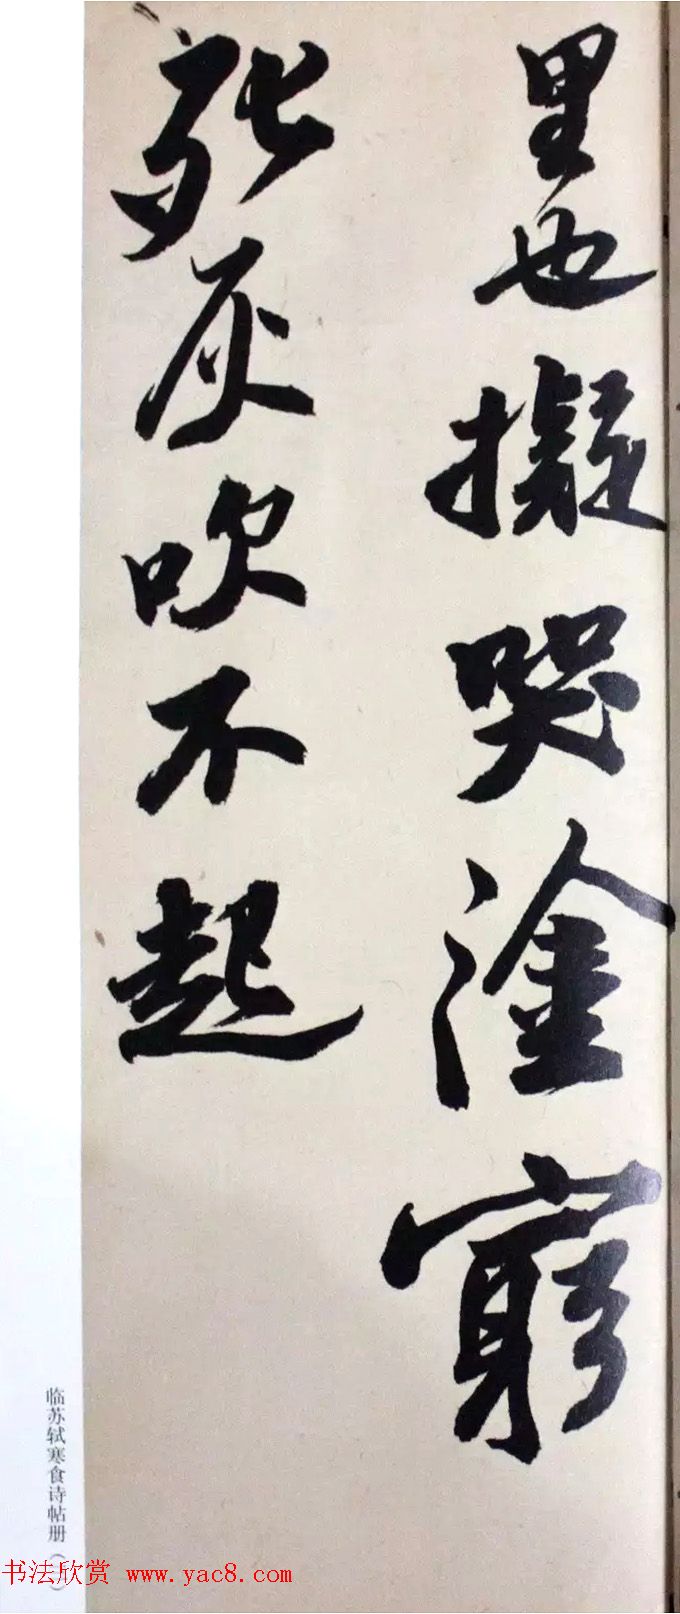 里也擬哭塗窮
死灰吹不起
临苏轼寒食诗帖册
书法欣赏 www.yac8.com